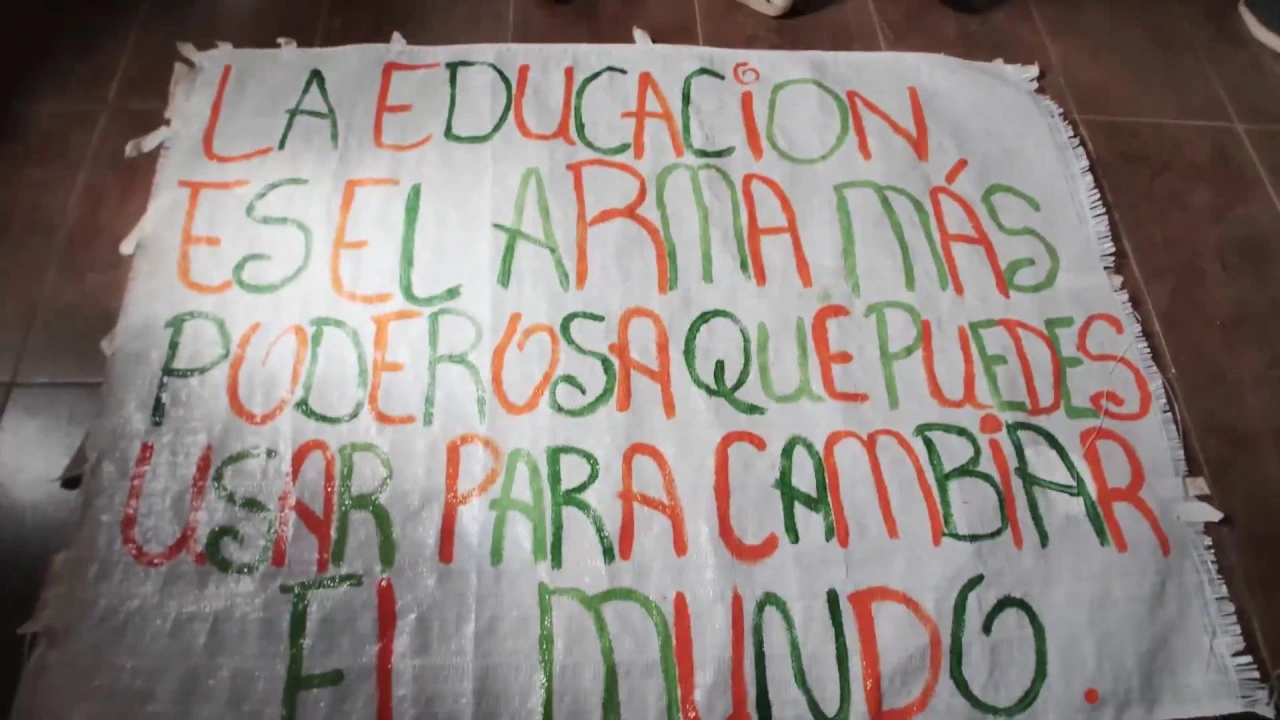 LA EDUCACiON
ES EL ARMA MÁS
PODEROSA QUE PUEDES
USAR PARA CAMBiAR
EL MUNDO.